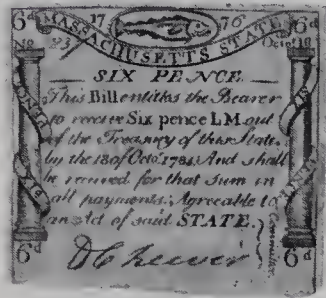 6d 17 76 6d
MASSACHUSETTS STATE
No 837 Octor 18
SIX PENCE
This Bill entitles the Bearer
to receive Six pence LM. out
of the Treasury of this State.
by the 18 of Octo. 1784. And shall
be received for that Sum in
all payments. Agreeable to
an Act of said STATE.
D Cheever
Committee
SIX PENCE
SIX PENCE
6d 6d